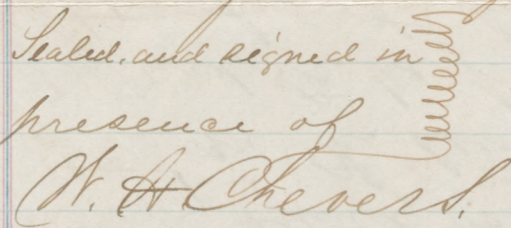 Sealed, and signed in
presence of
W. H. Chevers.